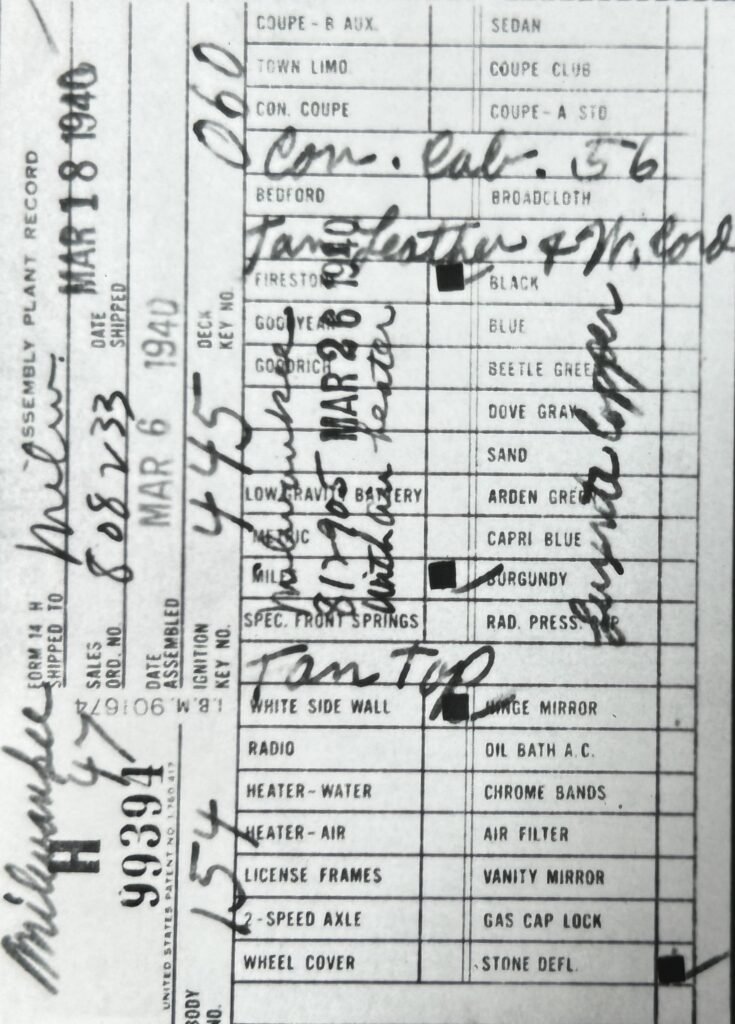 ASSEMBLY PLANT RECORD
FORM 14 H
SHIPPED TO Milw.
MAR 18 1940
SALES ORD. NO. 808233
DATE SHIPPED
DATE ASSEMBLED MAR 6 1940
IGNITION KEY NO. 445
DECK KEY NO. 060
Milwaukee
47
H 99394
I.B.M. 901674
UNITED STATES PATENT NO. 1,780,417
BODY NO. 154
COUPE-B AUX. SEDAN
TOWN LIMO. COUPE CLUB
CON. COUPE COUPE-A STD
Con. Cab. 56
BEDFORD BROADCLOTH
Tan Leather & W. Cord
FIRESTONE BLACK
GOODYEAR BLUE
GOODRICH BEETLE GREEN
DOVE GRAY
SAND
LOW GRAVITY BATTERY ARDEN GREEN
METRIC CAPRI BLUE
MILES BURGUNDY
SPEC. FRONT SPRINGS RAD. PRESS. CAP
Milwaukee
812905 MAR 26 1940
With air heater
Copper
Tan Top
WHITE SIDE WALL HINGE MIRROR
RADIO OIL BATH A.C.
HEATER-WATER CHROME BANDS
HEATER-AIR AIR FILTER
LICENSE FRAMES VANITY MIRROR
2-SPEED AXLE GAS CAP LOCK
WHEEL COVER STONE DEFL.